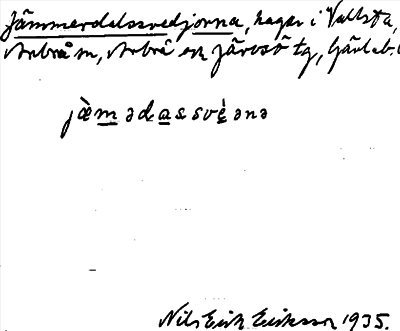 Jämmerdalssvedjorna, hagar i Vallsta,
Arbrå sn, Arbrå och Järvsö tg, Gävleb. l
jæ̀mədassvèənə
Nils Erik Eriksson 1935.